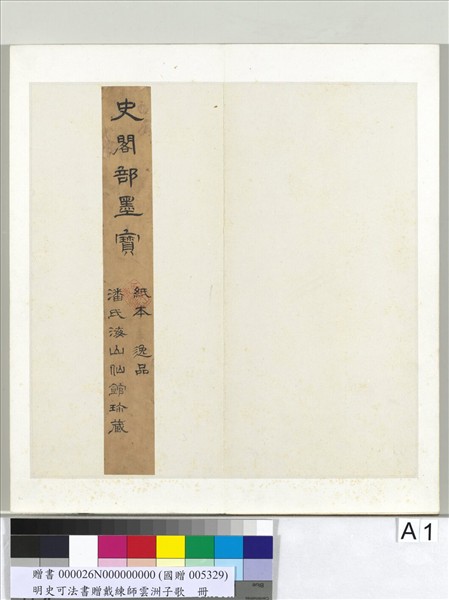 史閣部墨寶
紙本 逸品
潘氏海山仙館珍藏
A1
贈書 000026N000000000 (國贈 005329)
明史可法書贈戴練師雲洲子歌 冊